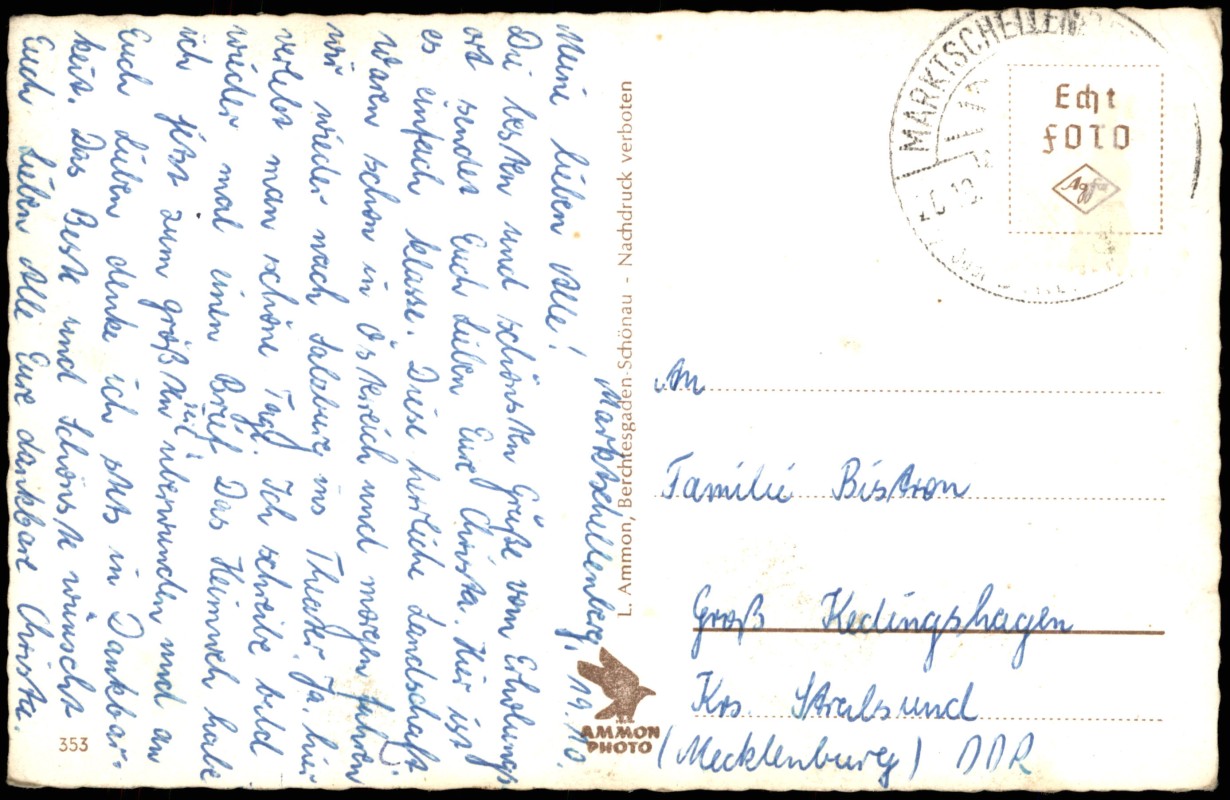 Marktschellenberg, 19.10.
Meine lieben Alle!
Die besten und schönsten Grüße vom Erholungs-
ort sendet Euch Lieben Eure Christa. Hier ist
es einfach klasse. Diese herrliche Landschaft
waren schon in Östreich und morgen fahren
wir wieder nach Salzburg ins Theater. Ja, hier
verlebt man schöne Tage. Ich schreibe bald
wieder mal einen Brief. Das Heimweh habe
ich jetzt zum größten Teil überwunden und an
Euch Lieben denke ich stets in Dankbar-
keit. Das Beste und Schönste wünscht
Euch Lieben Alle Eure dankbare Christa.
353
L. Ammon, Berchtesgaden-Schönau - Nachdruck verboten
AMMON
PHOTO
MARKTSCHELLEN
Echt
FOTO
Agfa
An
Familie Bistron
Groß Kedingshagen
Krs. Stralsund
(Mecklenburg) DDR